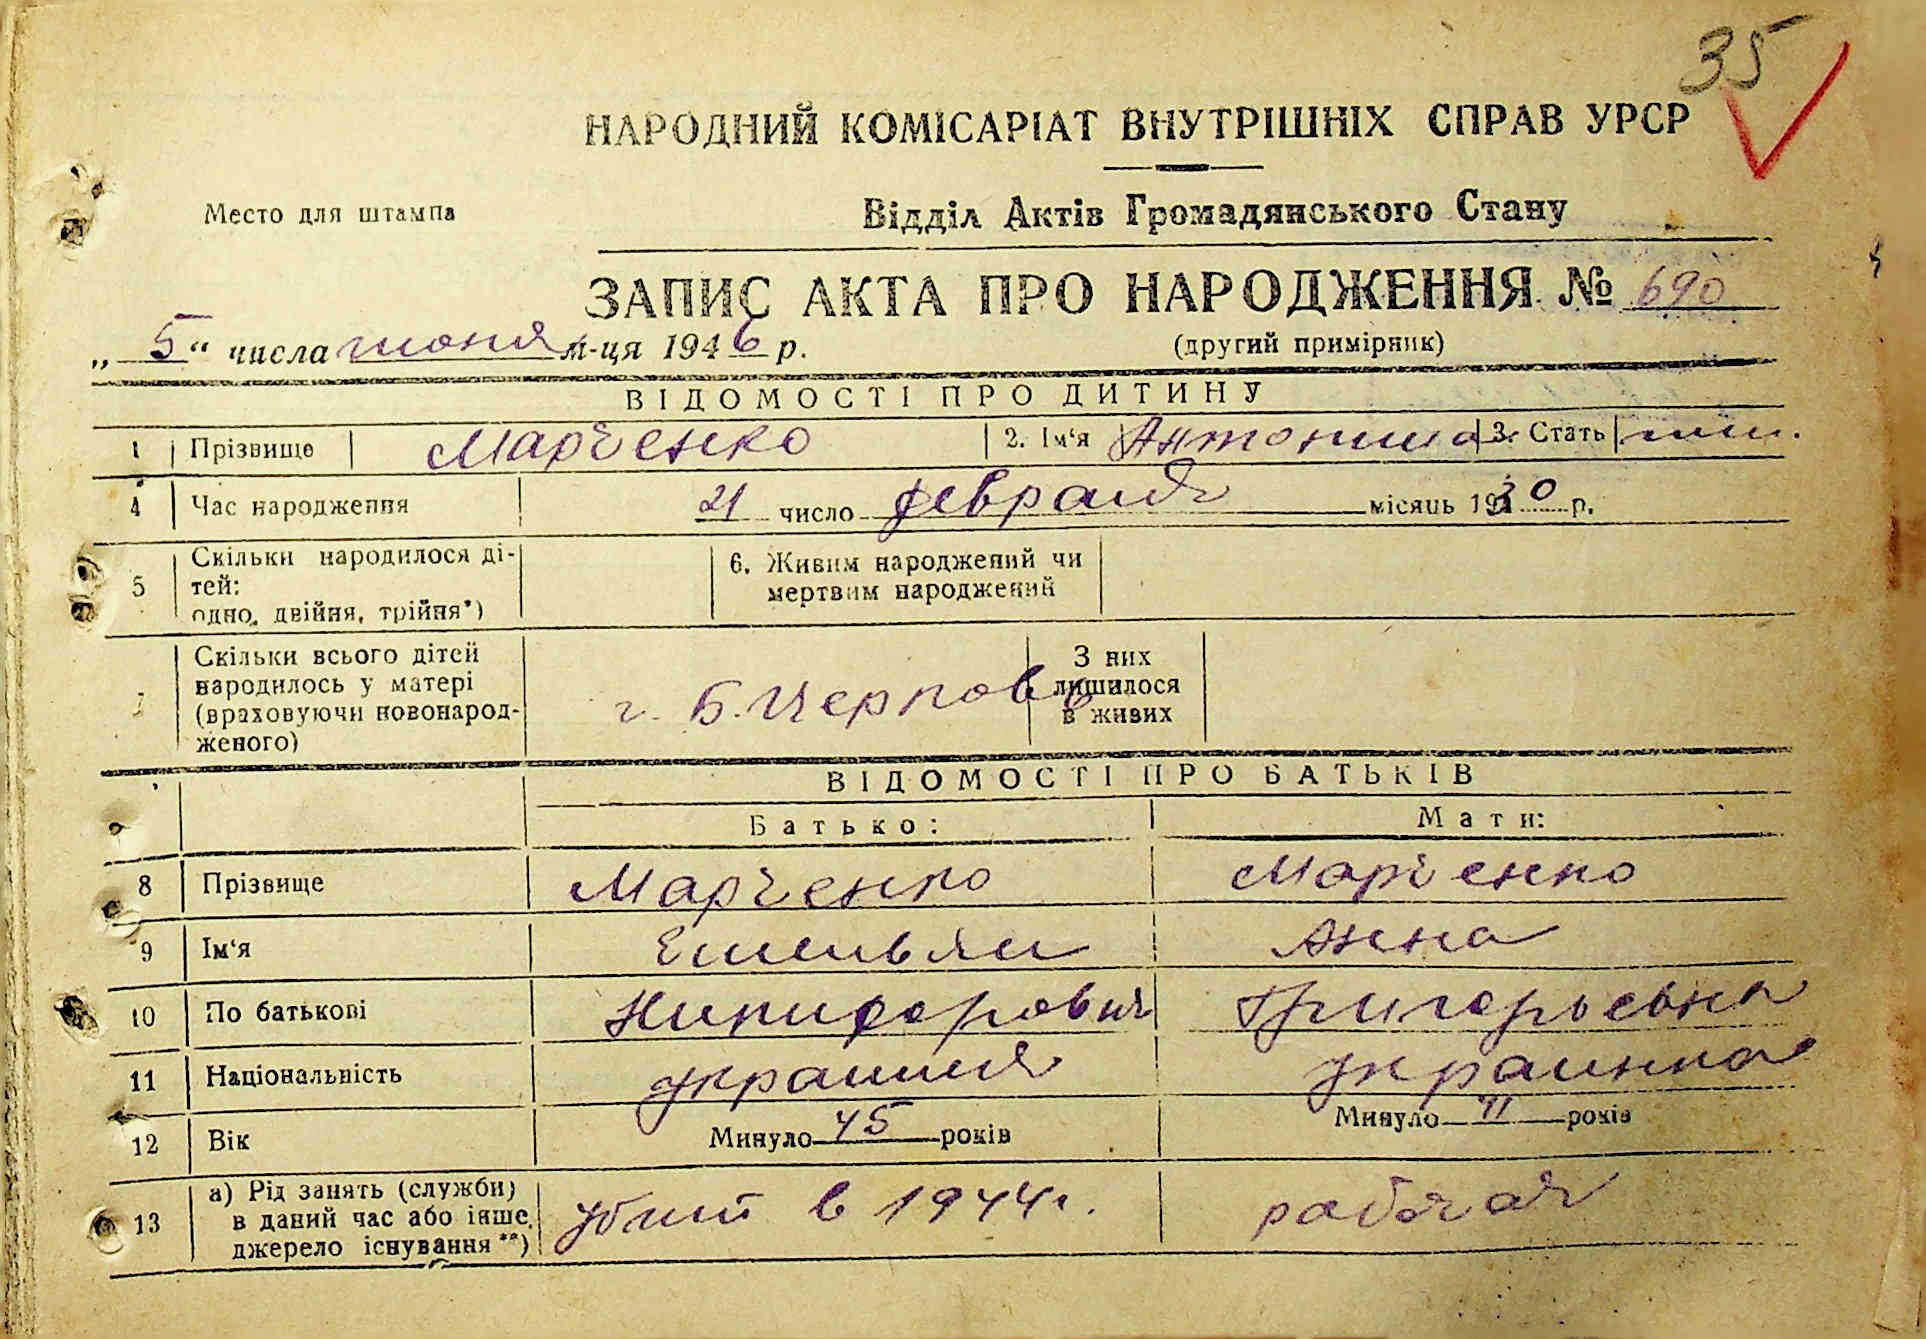 35
НАРОДНИЙ КОМІСАРІАТ ВНУТРІШНІХ СПРАВ УРСР
Место для штампа
Відділ Актів Громадянського Стану
ЗАПИС АКТА ПРО НАРОДЖЕННЯ № 690
„ 5 “ числа июня м-ця 1946 р.
(другий примірник)
ВІДОМОСТІ ПРО ДИТИНУ
1 Прізвище Марченко 2. Ім‘я Антонина 3. Стать
4 Час народження 21 число февраля місяць 1930 р.
5 Скільки народилося ді-
тей:
одно, двійня, трійня*)
6. Живим народжений чи
мертвим народжений
7 Скільки всього дітей
народилось у матері
(враховуючи новонарод-
женого)
г. Б.
З них
лишилося
в живих
ВІДОМОСТІ ПРО БАТЬКІВ
Батько: Мати:
8 Прізвище Марченко Марченко
9 Ім‘я Емельян Анна
10 По батькові Никифорович Григорьевна
11 Національність украинец украинка
12 Вік Минуло 45 років Минуло 41 років
13 а) Рід занять (служби)
в даний час або інше
джерело існування**)
убит в 1944 г. рабочая